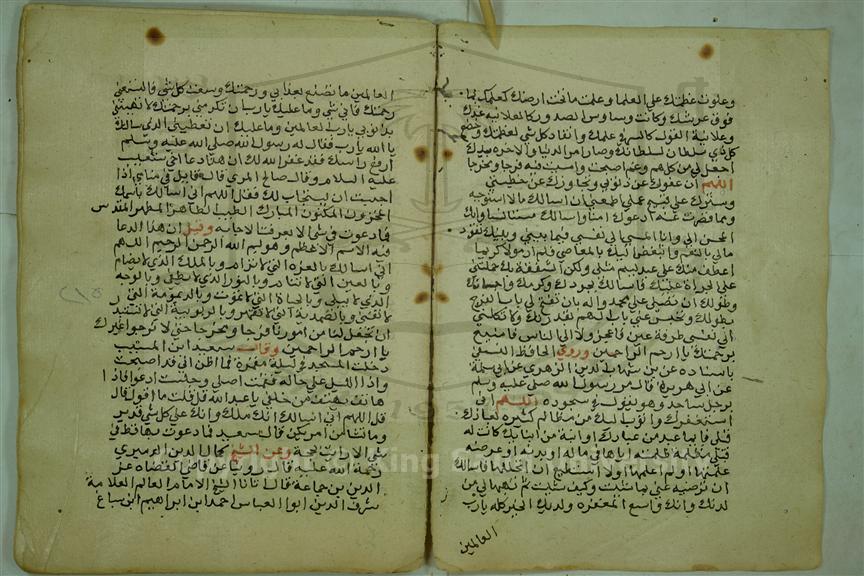 وعلوت بعظمتك على العظما وعلمت ما تحت ارضك كعلمك بما
فوق عرشك وكانت وساوس الصدور كالعلانية عندك
وعلانية القول كالسر في علمك وانقاد كل شي لعظمتك وخضع
كل ذي سلطان لسلطانك وصار امر الدنيا والاخرة بيدك
اجعل لي من كل هم وغم اصبحت وامسيت فيه فرجا ومخرجا
اللهم ان عفوك عن ذنوبي وتجاوزك عن خطيئتي
وسترك على قبيح عملي اطمعني ان اسالك ما لا استوجبه
وما قصرت عنه ادعوك امنا واسالك مستانسا وانك
المحسن الي وانا المسي الى نفسي فيما بيني وبينك تتودد
الي بالنعم واتبغض اليك بالمعاصي فلم ار مولا كريما
اعطف منك على عبد لييم مثلي ولكن الثقة بك حملتني
على الجراة عليك فاسالك بجودك وكرمك واحسانك
وطولك ان تصلي على محمد واله وان
الى نفسي طرفة عين فاعجز ولا الى الناس فاضيع
برحمتك يا ارحم الراحمين وروي الحافظ النسفي
باسناده عن ابن شهاب الدين الزهري عن ابي سلمة
عن ابي هريرة قال مر رسول الله صلى عليه وسلم
برجل ساجد وهو يقول في سجوده اللهم اني
استغفرك واتوب اليك من مظالم كثيرة لعبادك
قبلي فايما عبد من عبادك او امة من امايك كانت له
قبلي مظلمة ظلمته اياها في ماله او بدنه او عرضه
علمتها او لم اعلمها ولا استطيع ان اتحللها فاسالك
ان ترضيه عني بما شيت وكيف شيت ثم تهبها لي من
لدنك وانك واسع المغفرة ولديك الخير كله يارب
العالمين
العالمين ما تصنع بعذابي ورحمتك وسعت كل شي فلتسعني
رحمتك فاني شي وما عليك يا رب ان تكرمني برحمتك لا تهنيني
بذنوبي يارب العالمين وما عليك ان تعطيني الذي سالتك
يا الله يارب فقال له رسول الله صلى الله عليه وسلم
ارفع راسك فقد غفر الله لك ان هذا دعا اخي شعيب
عليه السلام وقال صالح المري قال قايل في منامي اذا
احببت ان يستجاب لك فقل اللهم اني اسالك باسمك
المخزون المكنون المبارك الطيب الطاهر المطهر المقدس
فما دعوت في شي الا تعرفت الاجابة وقيل ان هذا الدعا
فيه الاسم الاعظم وهو بسم الله الرحمن الرحيم اللهم
اني اسالك بالعزة التي لا ترام وبالملك الذي لا يضام
وبالعين التي لا تنام وبالنور الذي لا يطفى وبالوجه
الذي لا يبلى وبالحياة التي لا تموت وبالديمومة التي
لا تفنى وبالصمدية التي لا تقهر وبالربوبية التي لا تستذل
ان تجعل لنا من امورنا فرجا ومخرجا حتى لا نرجوا غيرك
يا ارحم الراحمين وقال سعيد ابن المسيب
دخلت المسجد في ليلة مقمرة فما اظن اني قد اصبحت
واذا الليل على حاله فقمت اصلي وجلست ادعوا فاذا
هاتف يهتف من خلفي يا عبد الله قل قلت ما اقول قال
قل اللهم اني اسالك انك ملك وانك على كل شي قدير
وما تشا من امر يكن قال سعيد فما دعوت بها قط في
شي الا رايت نجحه وعن الشيخ كمال الدين الدميري
رحمة الله عليه قال روينا عن قاضي القضاة عز
الدين بن جماعة قال انبانا الشيخ الامام العالم العلامة
شرف الدين ابو العباس احمد ابن ابراهيم ابن سباع